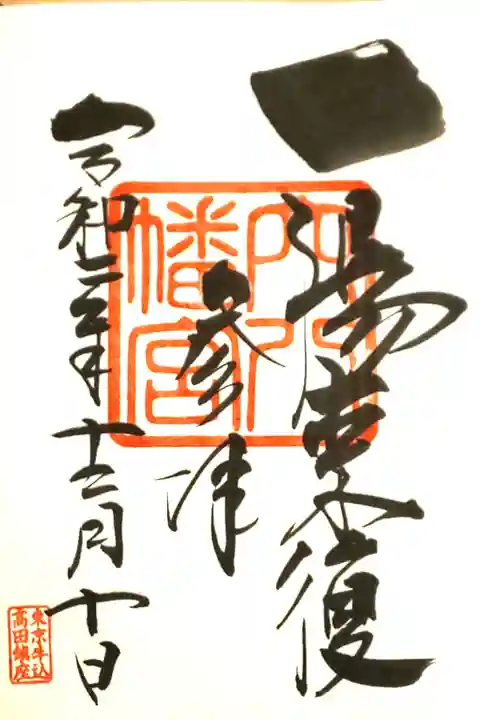 一陽来復
参拝
令和三年十二月十日
穴八
幡宮
東京牛込
高田鎮座